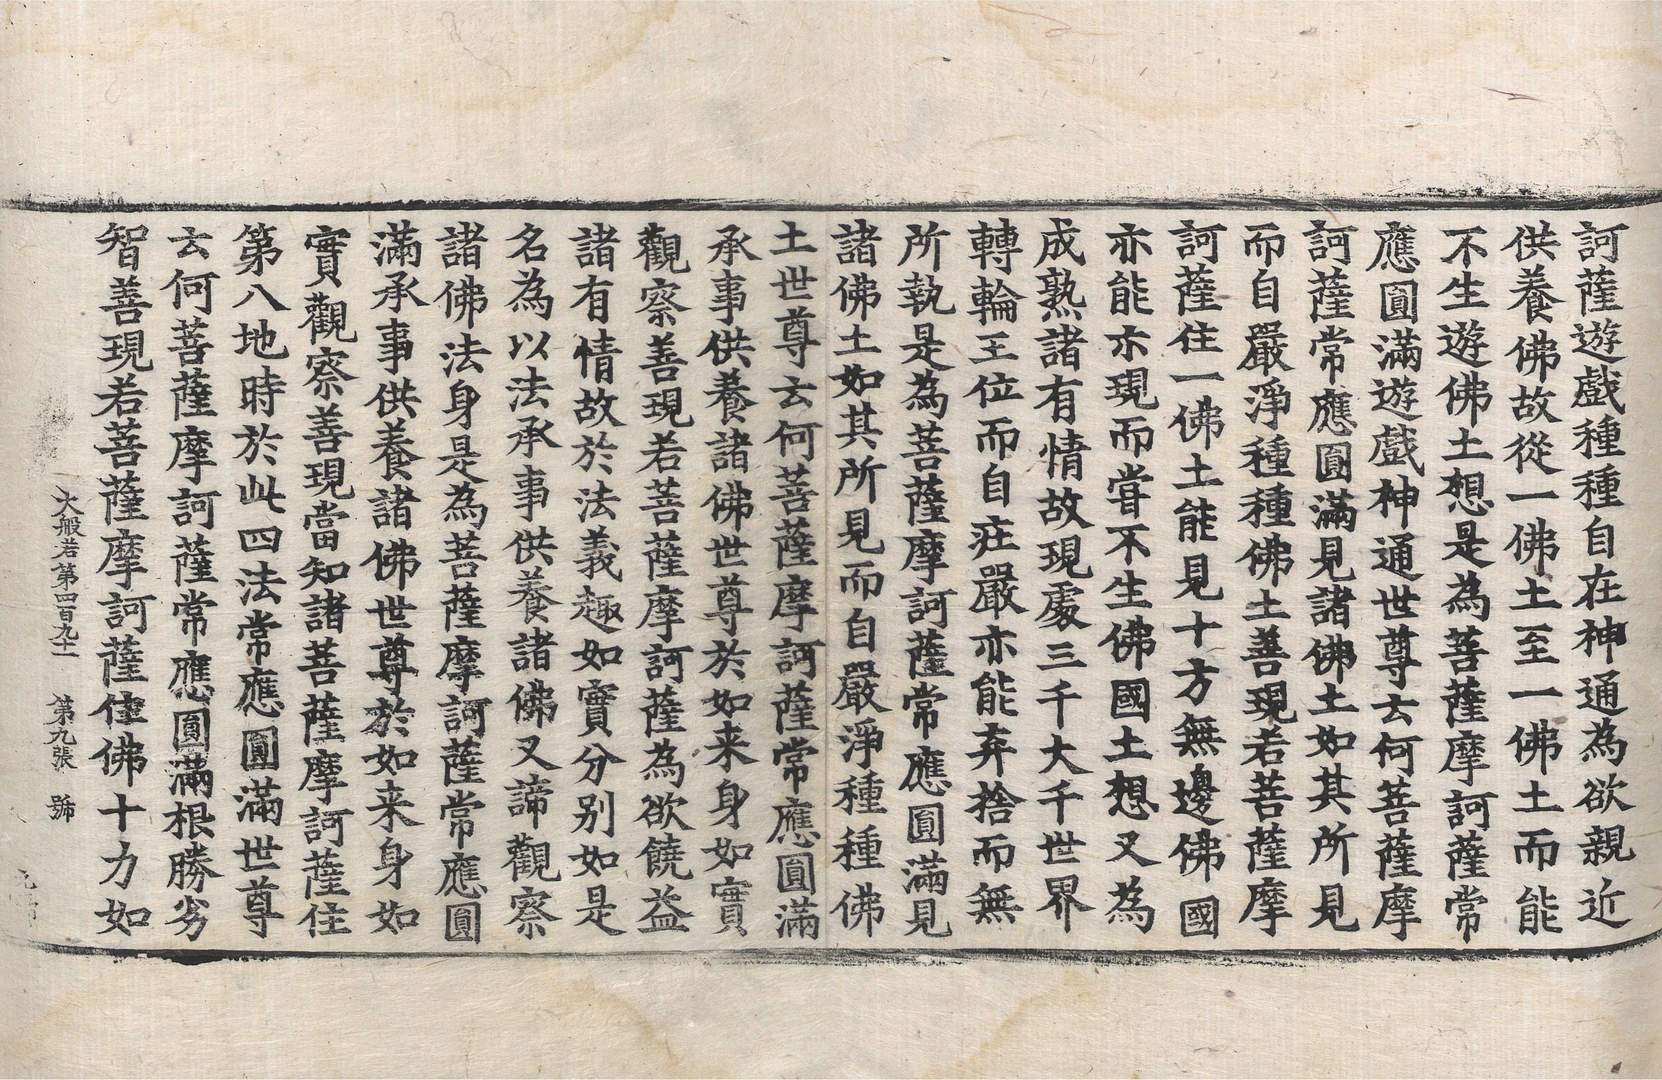 訶薩遊戲種種自在神通為欲親近
供養佛故從一佛土至一佛土而能
不生遊佛土想是為菩薩摩訶薩常
應圓滿遊戲神通世尊云何菩薩摩
訶薩常應圓滿見諸佛土如其所見
而自嚴淨種種佛土善現若菩薩摩
訶薩住一佛土能見十方無邊佛國
亦能示現而甞不生佛國土想又為
成熟諸有情故現處三千大千世界
轉輪王位而自莊嚴亦能弃捨而無
所執是為菩薩摩訶薩常應圓滿見
諸佛土如其所見而自嚴淨種種佛
土世尊云何菩薩摩訶薩常應圓滿
承事供養諸佛世尊於如来身如實
觀察善現若菩薩摩訶薩為欲饒益
諸有情故於法義趣如實分別如是
名為以法承事供養諸佛又諦觀察
諸佛法身是為菩薩摩訶薩常應圓
滿承事供養諸佛世尊於如来身如
實觀察善現當知諸菩薩摩訶薩住
第八地時於此四法常應圓滿世尊
云何菩薩摩訶薩常應圓滿根勝劣
智善現若菩薩摩訶薩住佛十力如
大般若第四百九十一 第九張 號